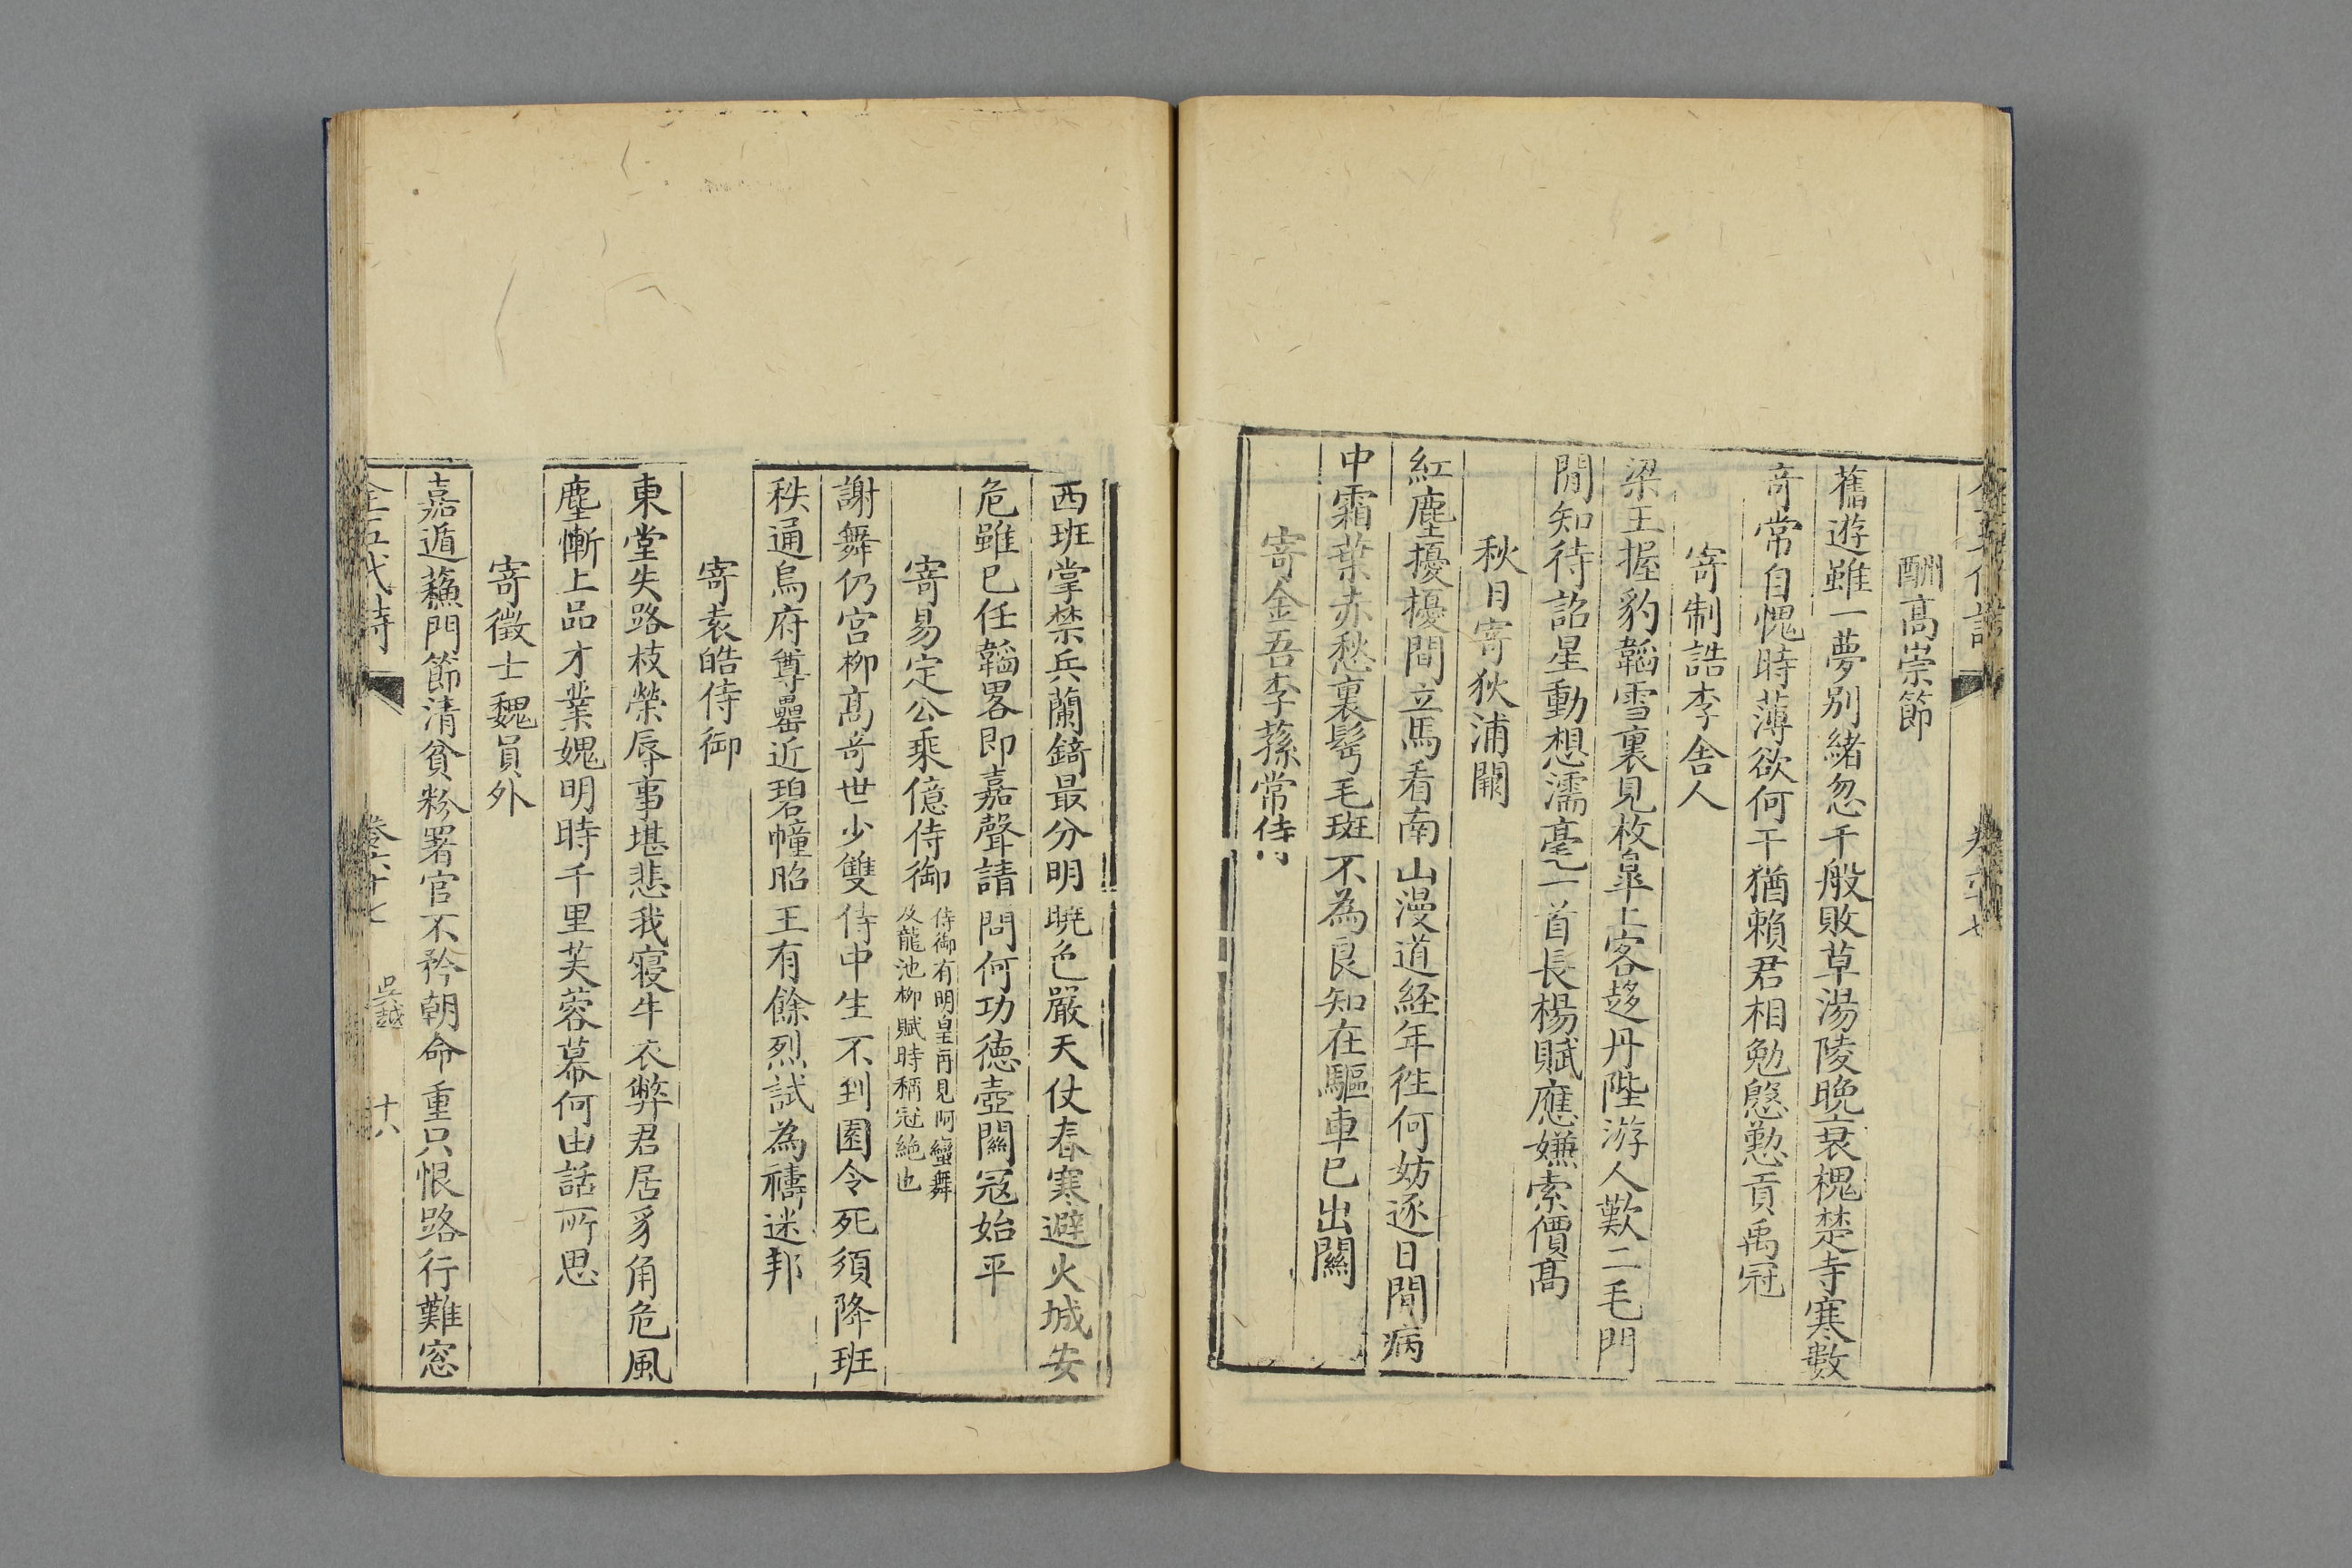 酬髙崇節
舊遊雖一夢别緒忽千般敗草湯陵晚衰槐楚寺寒數
竒常自愧時薄欲何干猶賴君相勉慇懃貢禹冠
寄制誥李舍人
梁王握豹韜雪裏見枚皐上客趍丹陛游人歎二毛門
閒知待詔星動想濡毫一首長楊賦應嫌索價髙
秋日寄狄浦闕
紅塵擾擾間立馬看南山漫道經年徃何妨逐日閒病
中霜葉赤愁裏鬂毛斑不為良知在驅車已出關
寄金吾李蓀常侍
西班掌禁兵蘭錡最分明曉色嚴天仗春寒避火城安
危雖已任韜畧即嘉聲請問何功德壺關冦始平
寄易定公乘億侍御
侍御有明皇再見阿蠻舞
及龍池柳賦時稱冠絶也
謝舞仍宫柳髙竒世少雙侍中生不到園令死須降班
秩通烏府尊罍近碧幢昭王有餘烈試為禱迷邦
寄袁皓侍御
東堂失路枝榮辱事堪悲我寢牛衣弊君居豸角危風
塵慚上品才業媿明時千里芙蓉幕何由話所思
寄徵士魏員外
嘉遁蘓門節清貧粉署官不矜朝命重只恨路行難窓
全五代詩
卷六十七
吳越
十八